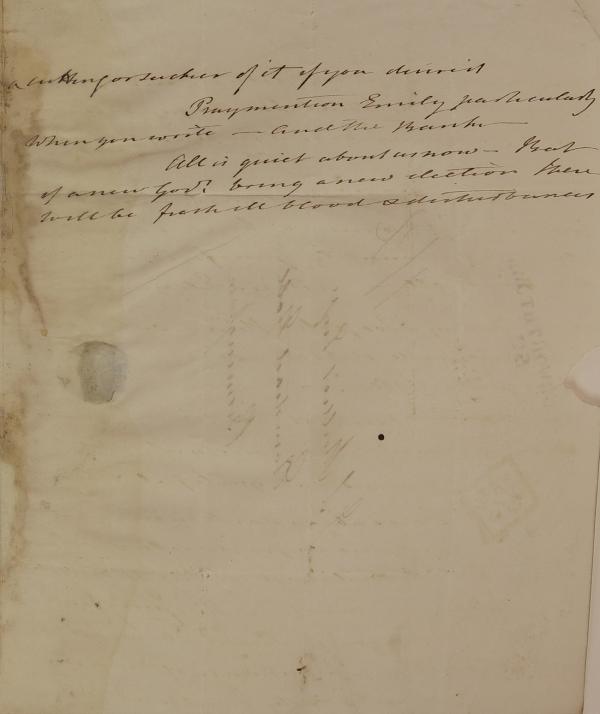 a cutting or sucker of it if you desired
Pray mention Emily particularly
When you write — And the Bank —
All is quiet about us now — But
if a new Gov.r bring a new election there
will be fresh ill blood & disturbances